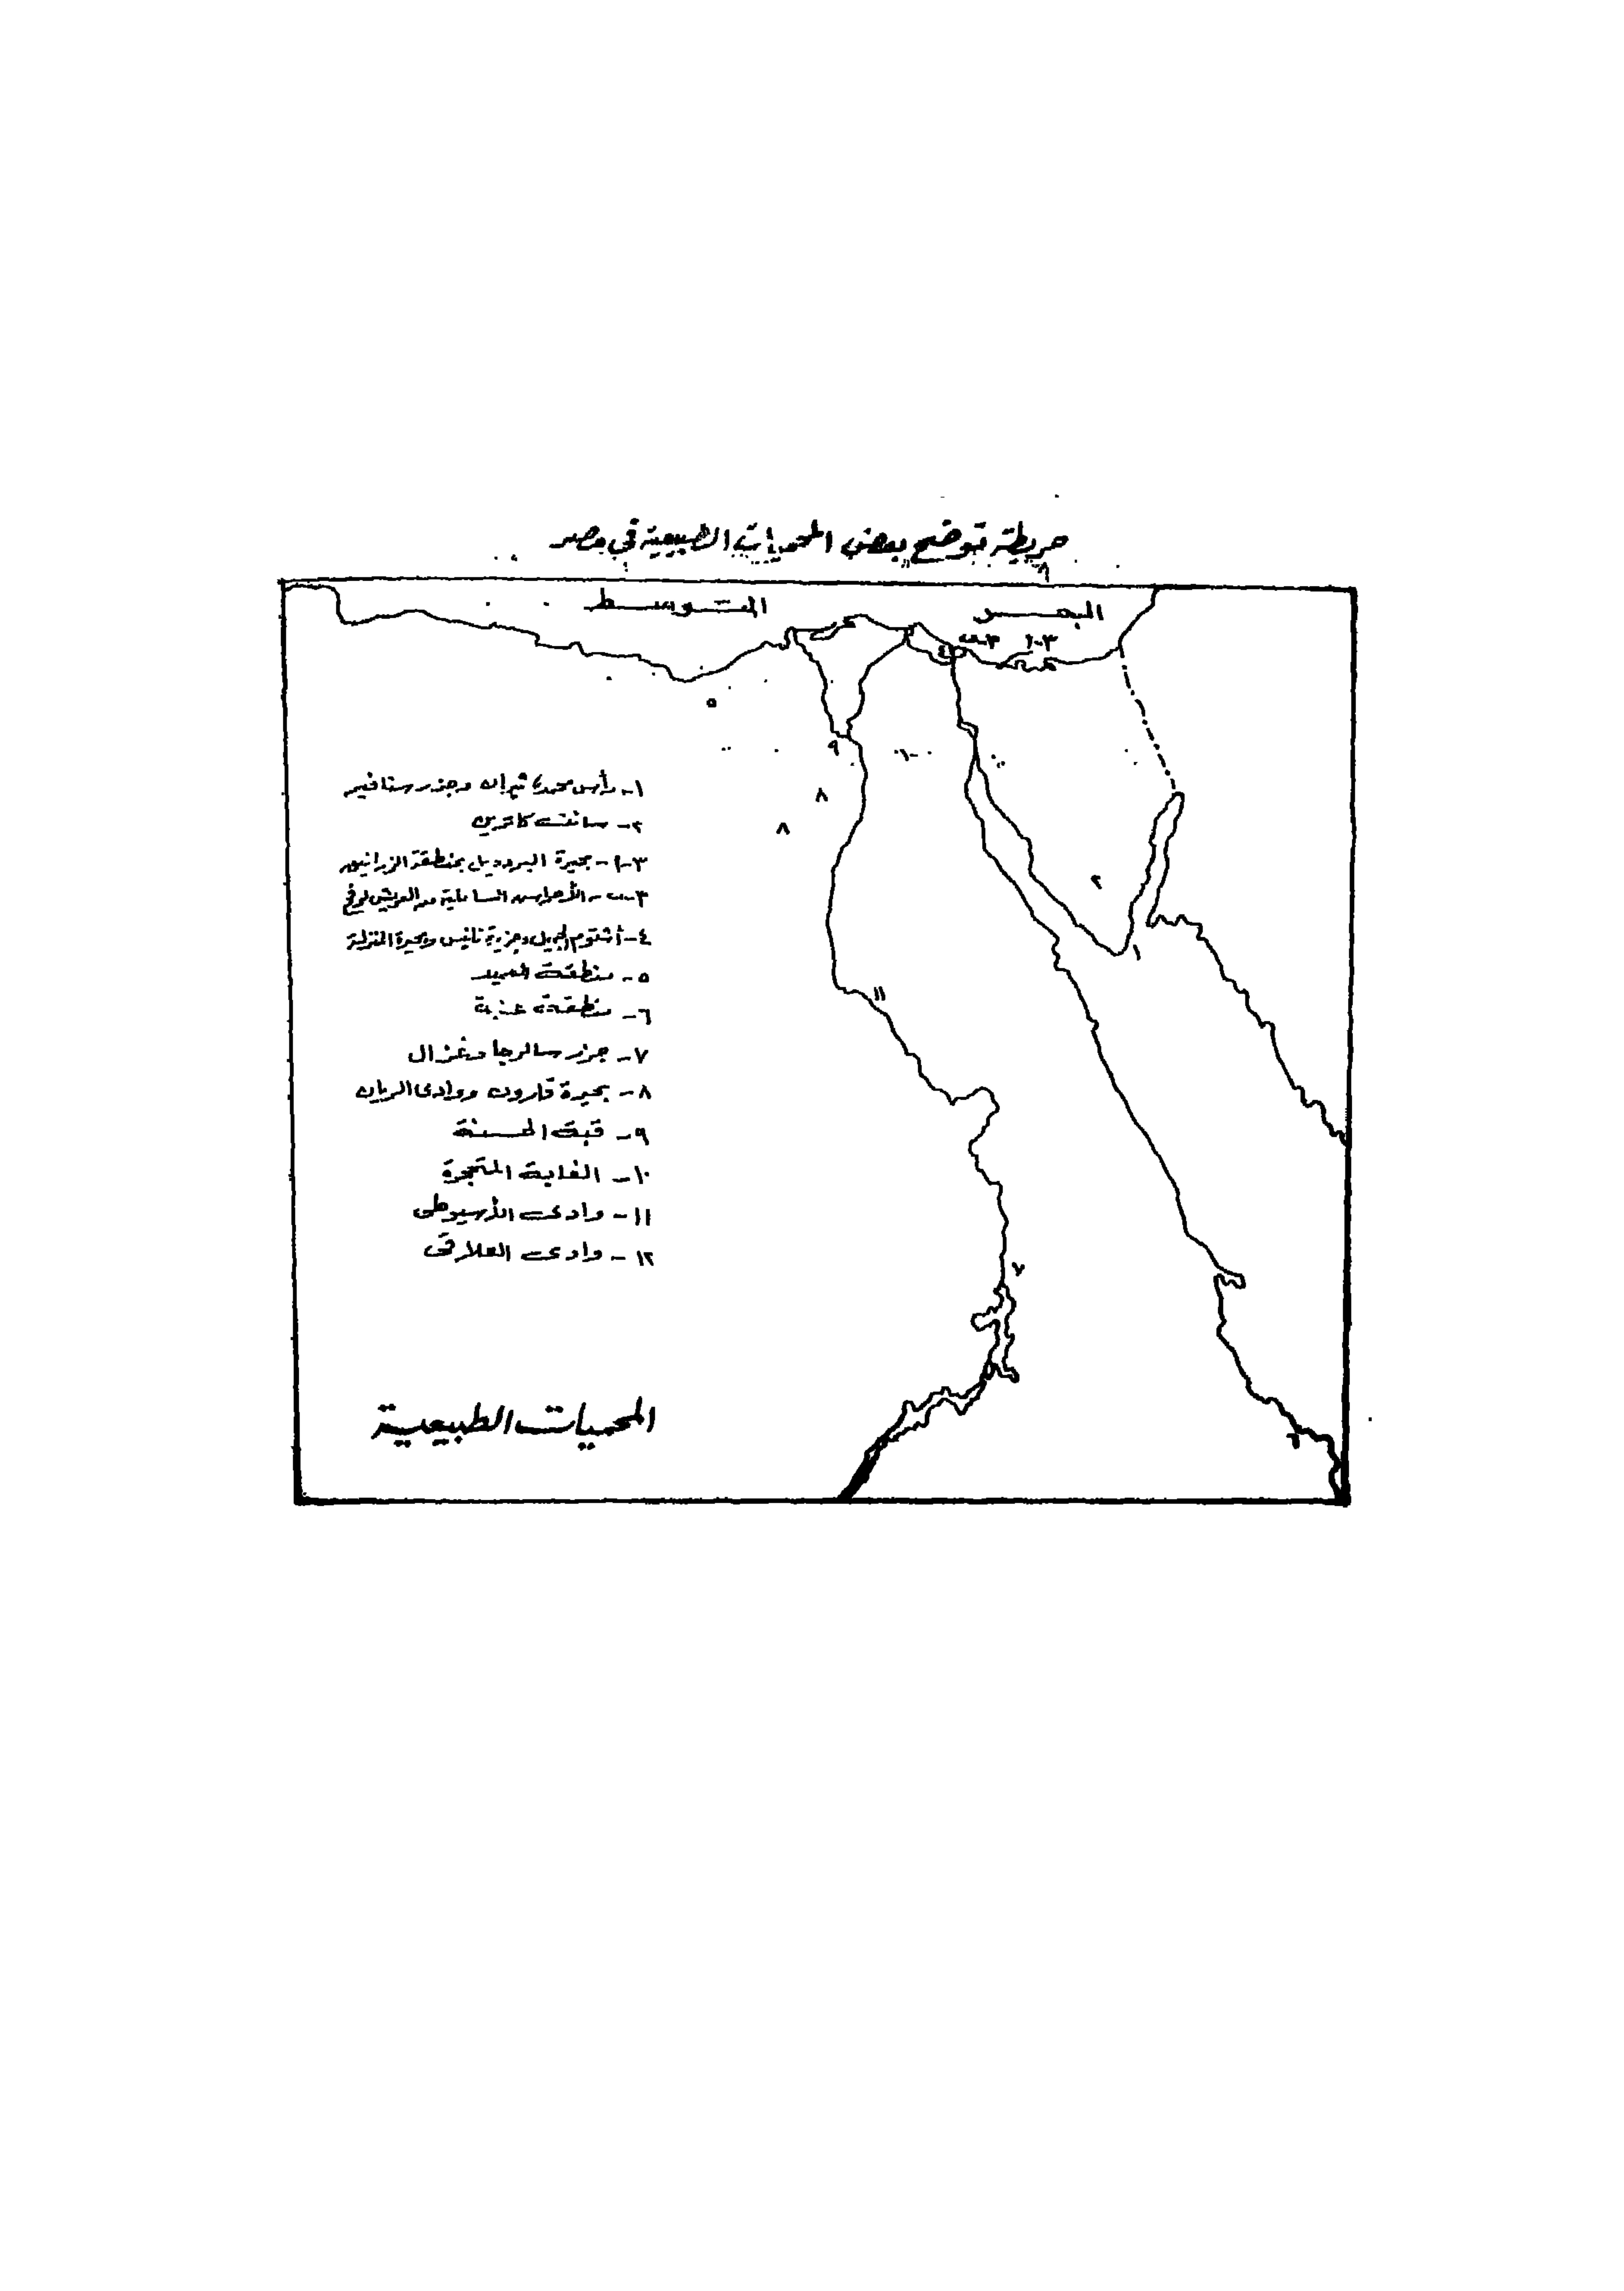 خريطة توضح بعض المحميات الطبيعية في مصر
البحر المتوسط
٣-١ ٣-ب
٤
٥
٩
١٠
٨
٨
٢
١
١١
٧
٦
١- رأس محمد، تيران وجزر سنافير
٢- سانت كاترين
٣-أ- بحيرة البردويل بمنطقة الزرانيق
٣-ب- الأحراس الساحلية من العريش لرفح
٤- أشتوم الجميل وجزيرة تانيس وبحيرة المنزلة
٥- منطقة العميد
٦- منطقة علبة
٧- جزر سالوجا وغزال
٨- بحيرة قارون ووادى الريان
٩- قبة الحسنة
١٠- الغابة المتحجرة
١١- وادى الأسيوطى
١٢- وادى العلاقى
المحميات الطبيعية